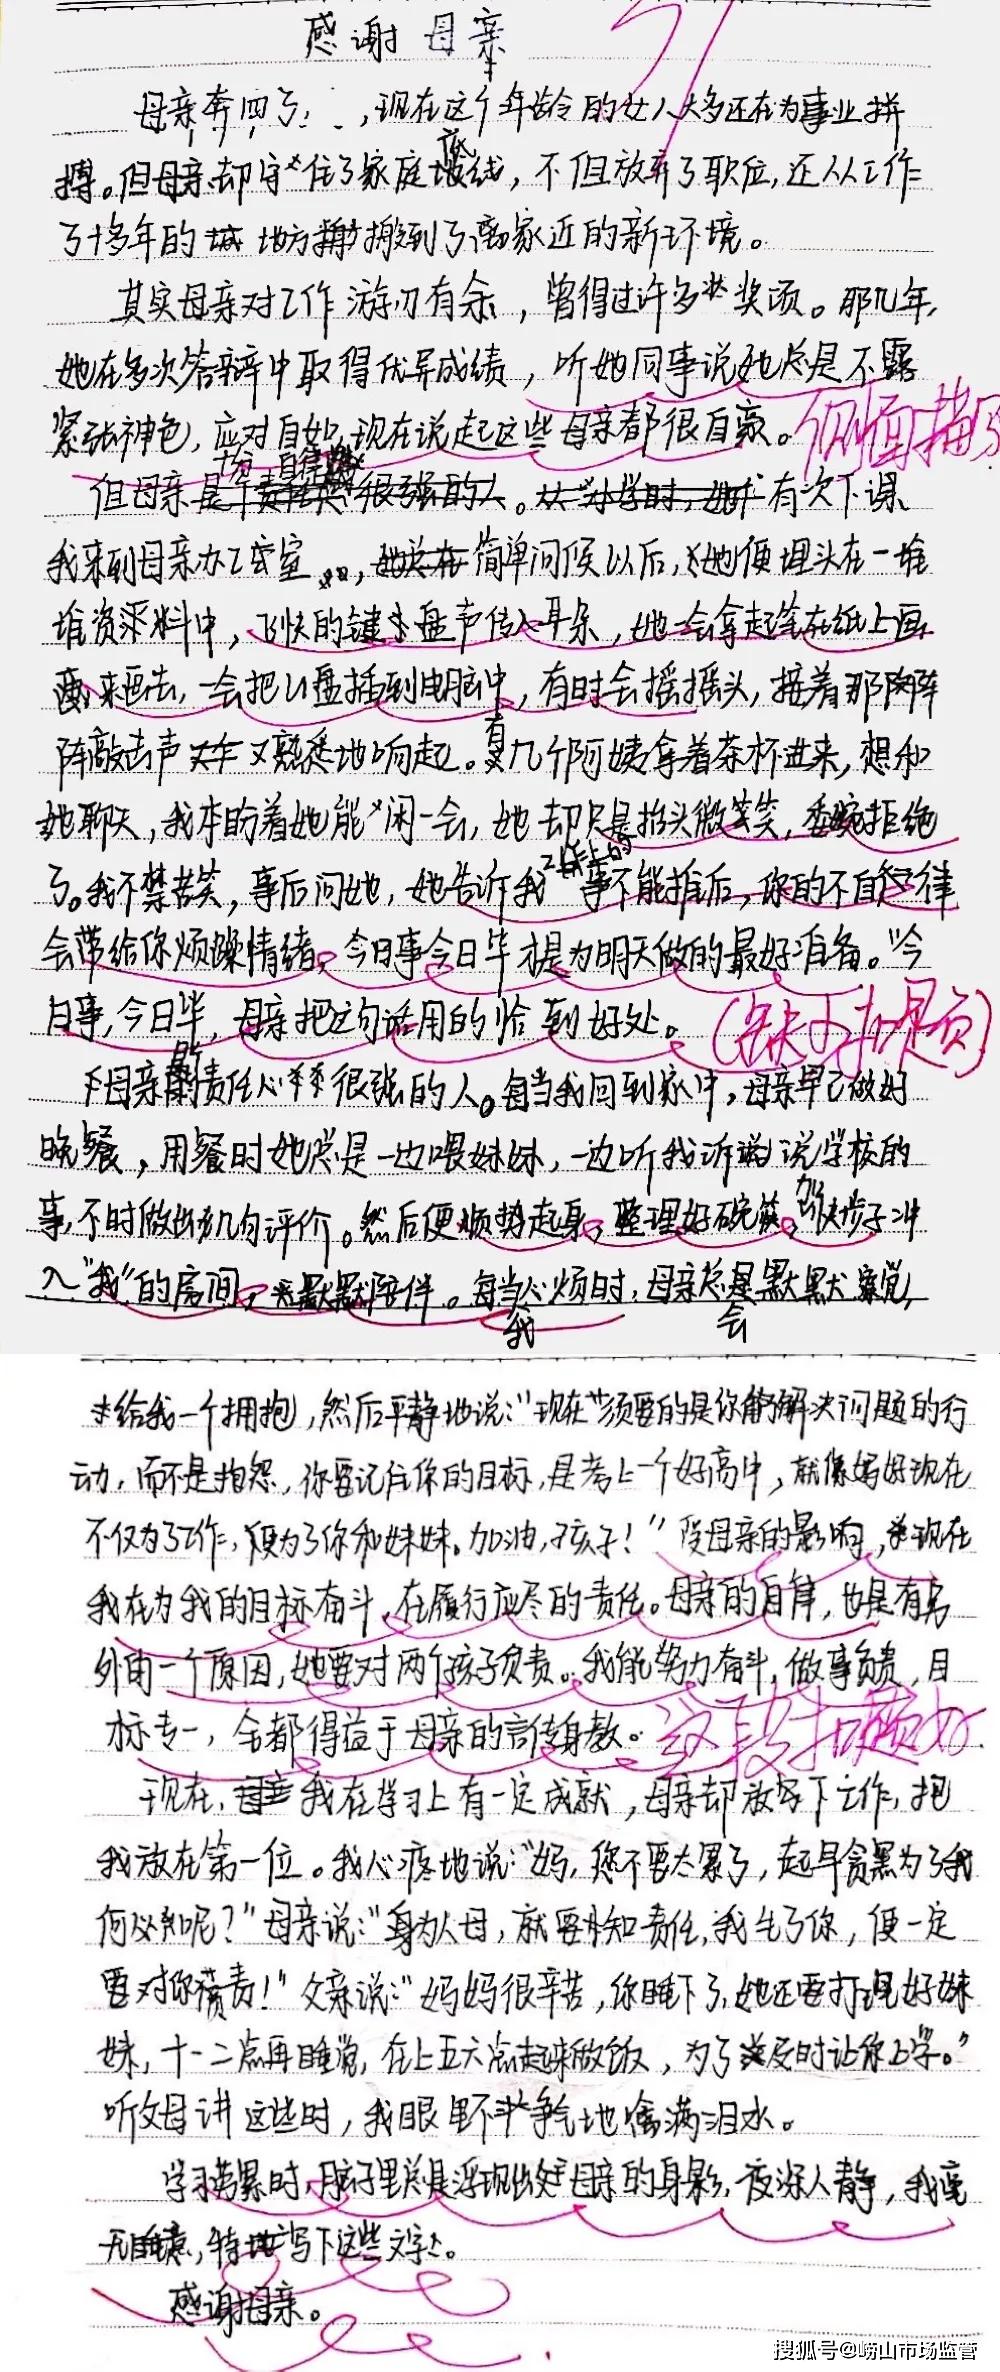 感谢母亲
母亲奔四了,现在这个年龄的女人大多还在为事业拼
搏。但母亲却守住了家庭底线,不但放弃了职位,还从工作
了十多年的地方搬到了离家近的新环境。
其实母亲对工作游刃有余,曾得过许多奖项。那几年,
她在多次答辩中取得优异成绩,听她同事说她总是不露
紧张神色,应对自如,现在说起这些母亲都很自豪。侧面描写
但母亲是十分自律的人。有次下课,
我来到母亲办公室,简单问候以后,她便埋头在一堆
堆资料中,飞快的键盘声传入耳朵,她一会拿起笔在纸上画
来画去,一会把U盘插到电脑中,有时会摇摇头,接着那阵
阵敲击声又熟悉地响起。有几个阿姨拿着茶杯进来,想和
她聊天,我本盼着她能闲一会,她却只是抬头微笑,委婉拒绝
了。我不禁苦笑,事后问她,她告诉我工作上的事不能推后,你的不自律
会带给你烦躁情绪,今日事今日毕才是为明天做的最好准备。"今
日事,今日毕,母亲把这句话用的恰到好处。
母亲是责任心很强的人。每当我回到家中,母亲早已做好
晚餐,用餐时她总是一边喂妹妹,一边听我诉说学校的
事,不时做出几句评价。然后便顺势起身,整理好碗筷,加快步子冲
入"我"的房间,默默陪伴。每当我心烦时,母亲总会默默察觉,
给我一个拥抱,然后平静地说:"现在须要的是你解决问题的行
动,而不是抱怨,你要记住你的目标,是考上一个好高中,就像妈妈现在
不仅为了工作,便为了你和妹妹。加油,孩子!"受母亲的影响,现在
我在为我的目标奋斗,在履行应尽的责任。母亲的自律,也是有另
外的一个原因,她要对两个孩子负责。我能努力奋斗,做事负责,目
标专一,全都得益于母亲的言传身教。这段扣题好
现在,我在学习上有一定成就,母亲却放下工作,把
我放在第一位。我心疼地说:"妈,您不要太累了,起早贪黑为了我
何必呢?"母亲说:"身为人母,就要知责任,我生了你,便一定
要对你负责!"父亲说:"妈妈很辛苦,你睡下了,她还要打理好妹
妹,十一二点再睡觉,在上五六点起来做饭,为了及时让你上学。"
听父母讲这些时,我眼里不争气地噙满泪水。
学习苦累时,脑子里总是浮现出母亲的身影,夜深人静,我毫
无睡意,特地写下这些文字。
感谢母亲。
搜狐号@崂山市场监管